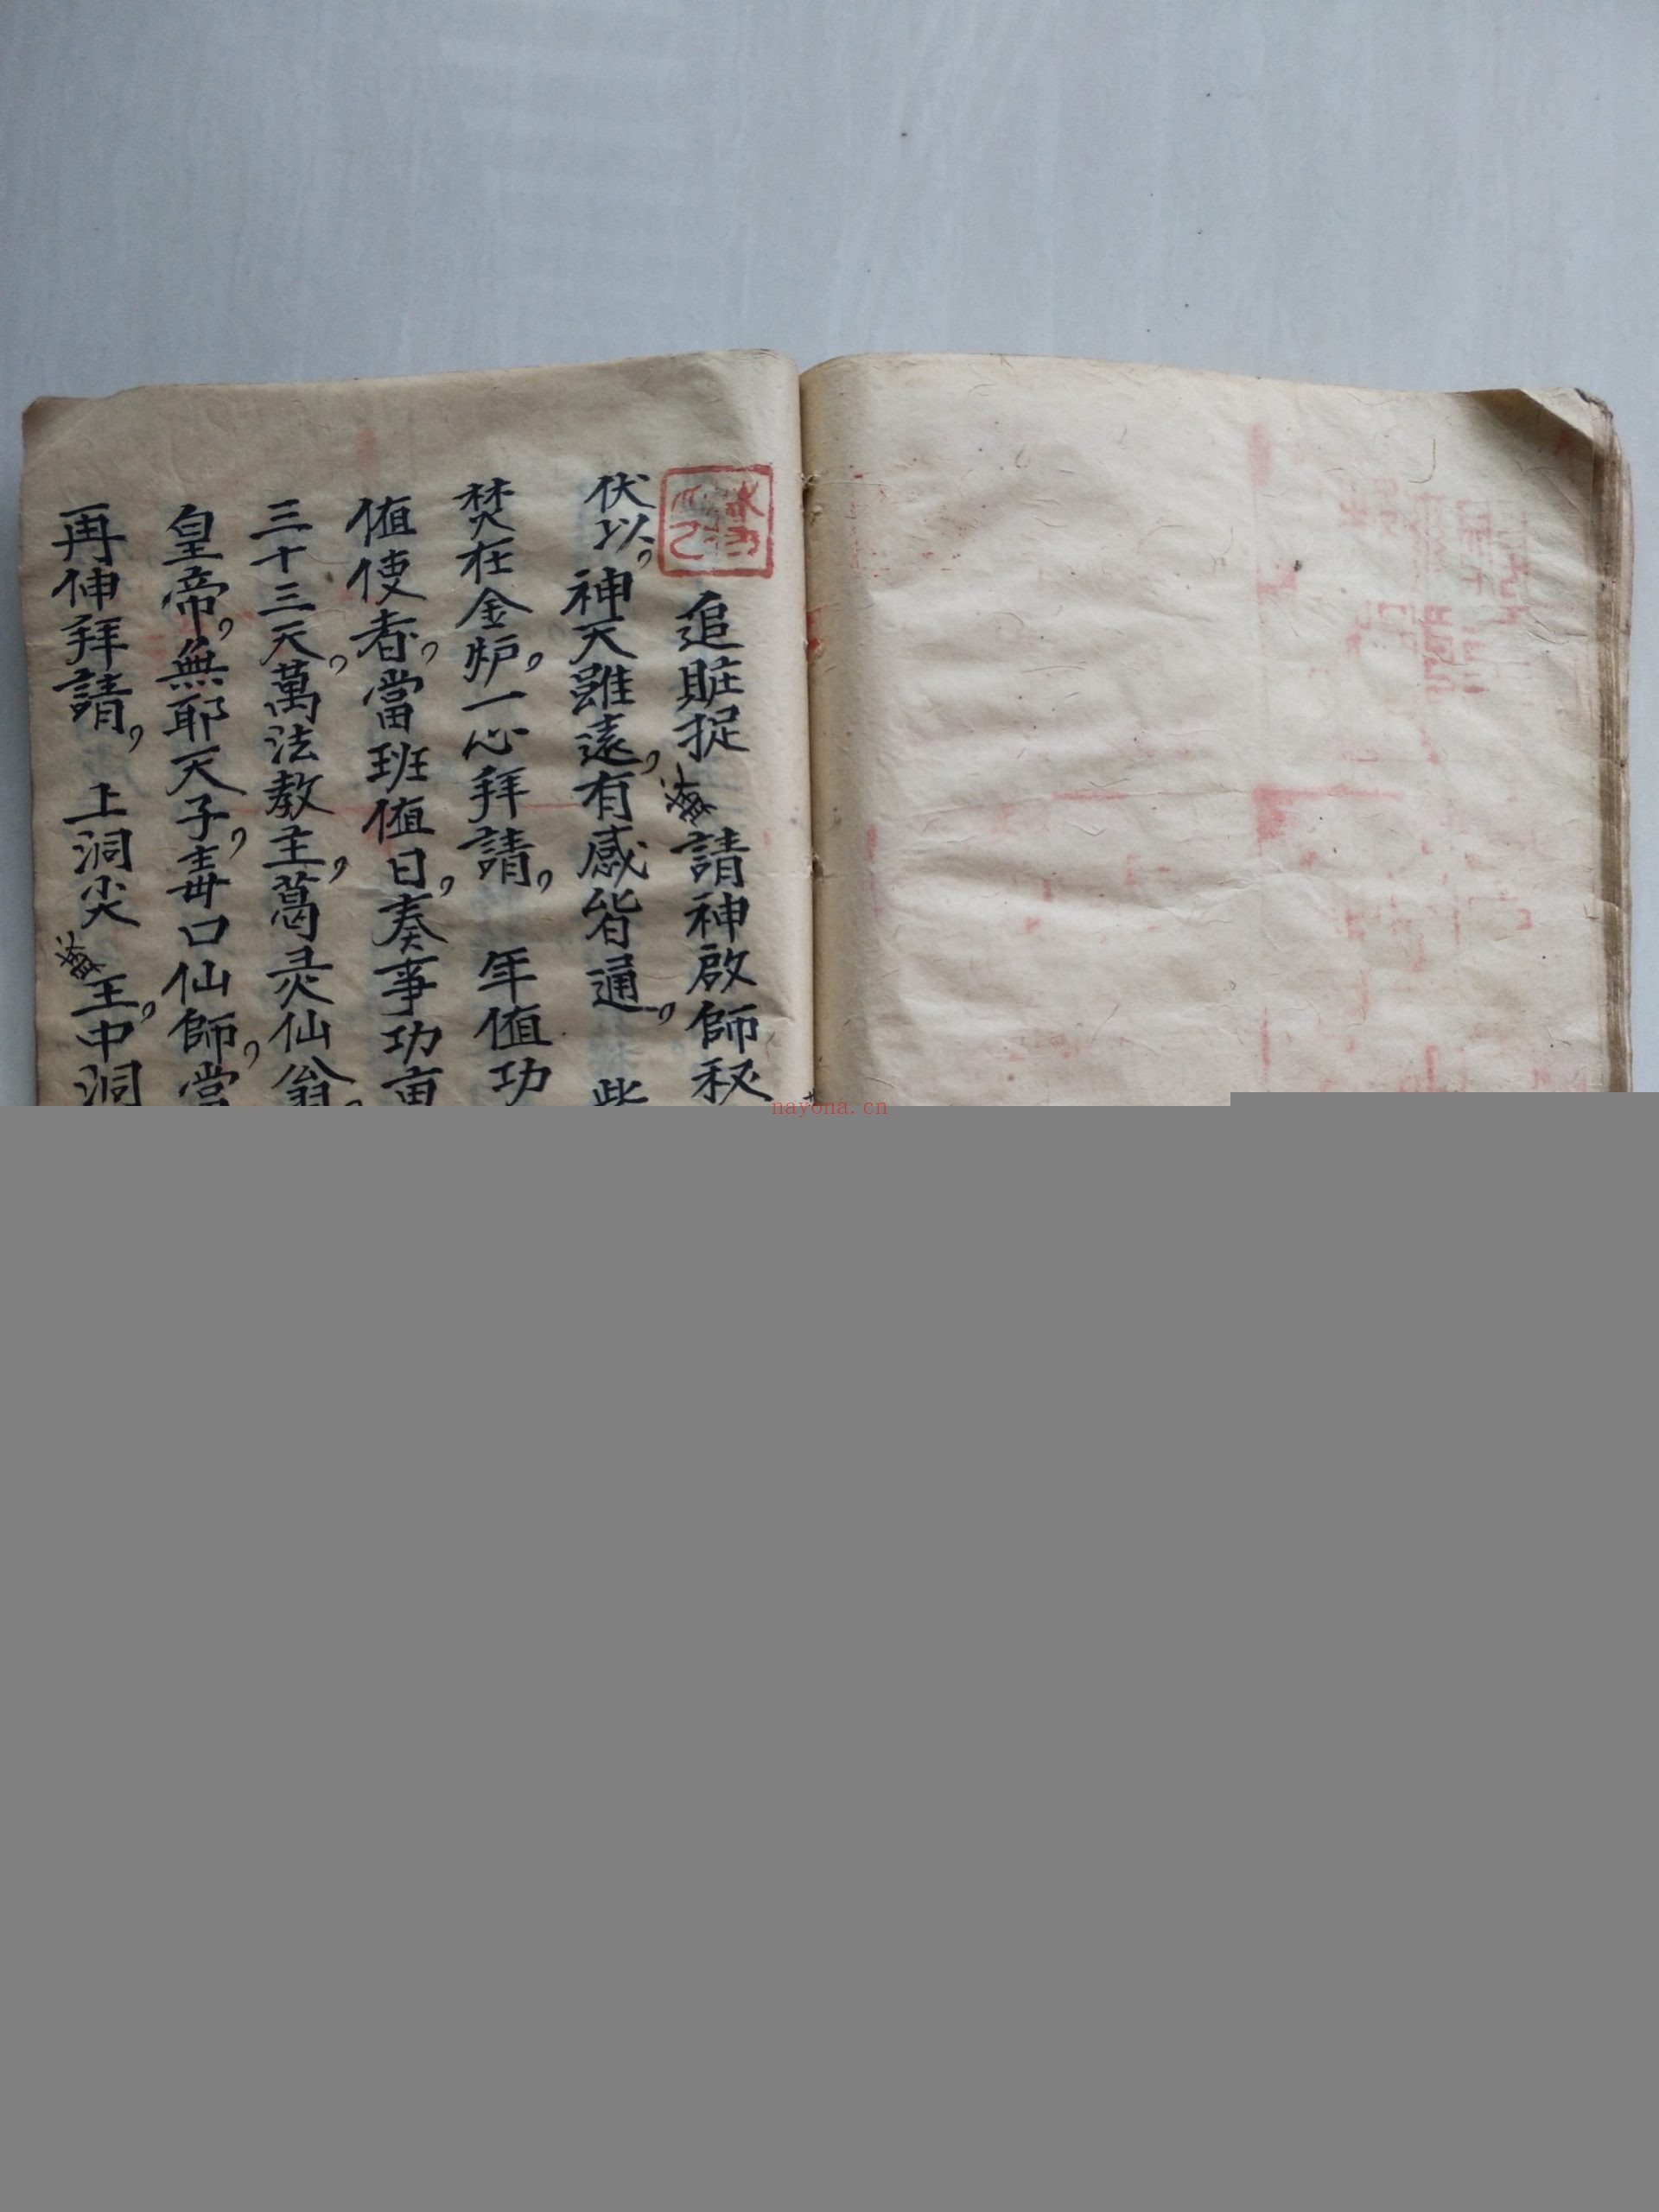 追賍捉 請神啟師秘
伏以，神天雖遠，有感皆通，
焚在金炉，一心拜請，年值功
值使者，當班值日，奏事功
三十三天，萬法教主，葛灵仙翁，
皇帝，無耶天子，毒口仙師，當
再伸拜請，上洞尖 王，中洞
nayona.cn